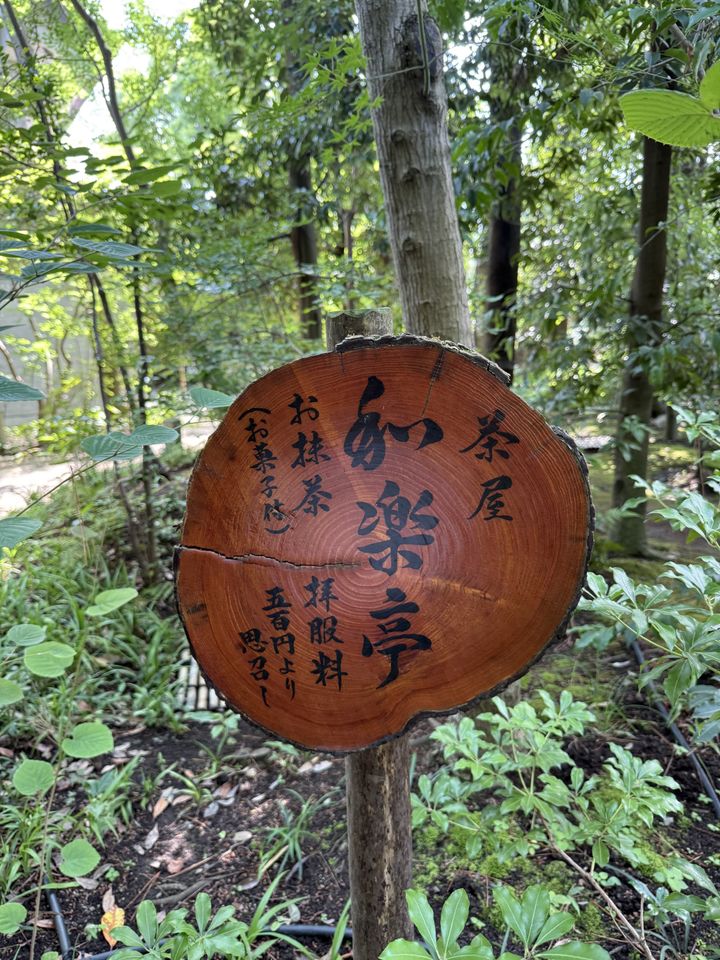 茶屋
和楽亭
お抹茶
(お菓子付)
拝服料
五百円より
思召し